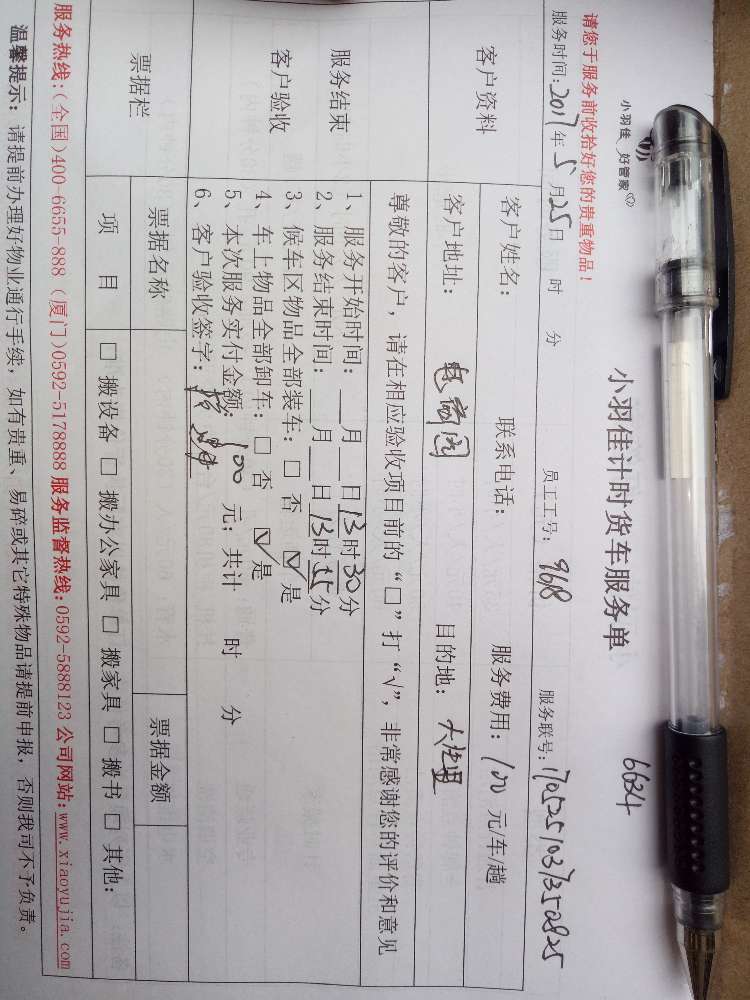 小羽佳 好管家
小羽佳计时货车服务单
6624
请您于服务前收拾好您的贵重物品！
服务时间：2017年5月25日 时 分 员工工号：968 服务联号：1705251037350825
客户资料
客户姓名： 联系电话： 服务费用：100 元/车/趟
客户地址： 目的地：
服务结束
客户验收
尊敬的客户，请在相应验收项目前的“□”打“√”，非常感谢您的评价和意见
1、服务开始时间：__月__日13时30分
2、服务结束时间：__月__日13时55分
3、候车区物品全部装车：□ 否 ☑ 是
4、车上物品全部卸车：□ 否 ☑ 是
5、本次服务实付金额：100 元；共计 时 分
6、客户验收签字：
票据栏
票据名称 票据金额
项 目 □ 搬设备 □ 搬办公家具 □ 搬家具 □ 搬书 □ 其他：
服务热线：（全国）400-6655-888 （厦门）0592-5178888 服务监督热线：0592-5888123 公司网站：www.xiaoyujia.com
温馨提示：请提前办理好物业通行手续，如有贵重、易碎或其它特殊物品请提前申报，否则我司不予负责。